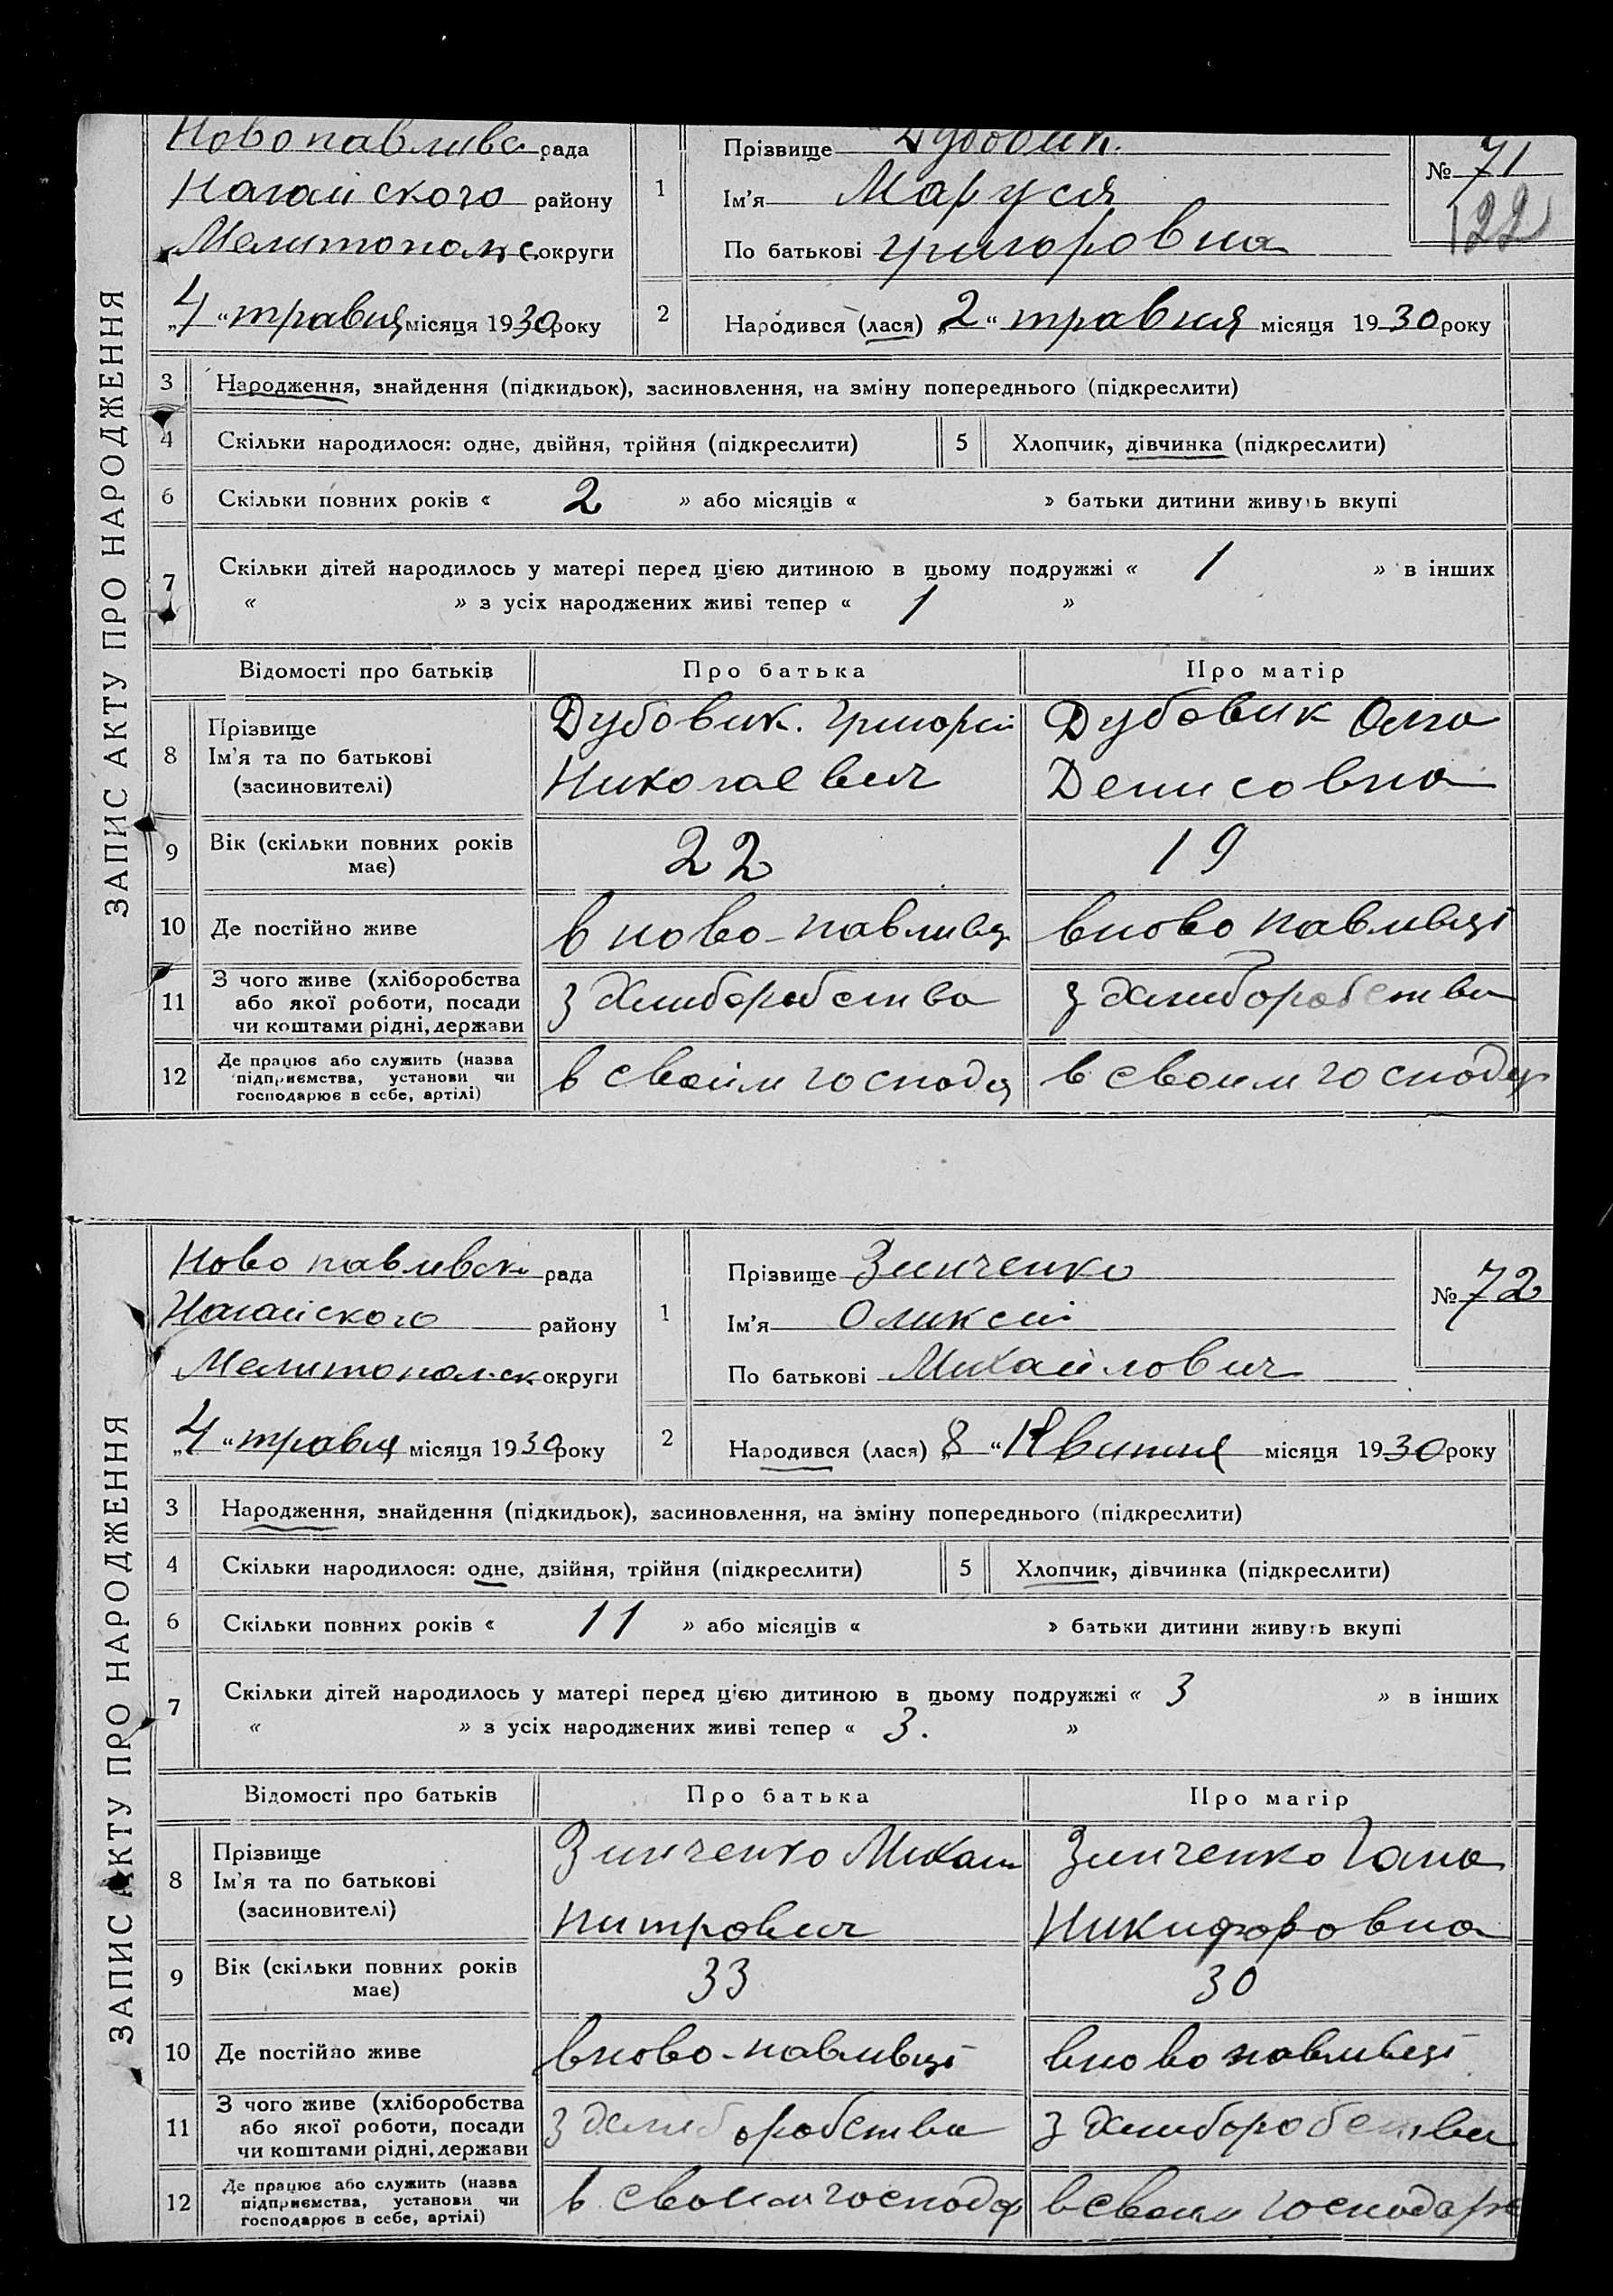 ЗАПИС АКТУ ПРО НАРОДЖЕННЯ
Новопавливс рада
Нагайского району
Мелитопольс округи
„4“ травня місяця 1930 року
1
Прізвище Дубовик.
Ім'я Маруся
По батькові Григоровна
№ 71
122
2
Народився (лася) „2“ травня місяця 1930 року
3 Народження, знайдення (підкидьок), засиновлення, на зміну попереднього (підкреслити)
4 Скільки народилося: одне, двійня, трійня (підкреслити) 5 Хлопчик, дівчинка (підкреслити)
6 Скільки повних років « 2 » або місяців « » батьки дитини живуть вкупі
7 Скільки дітей народилось у матері перед цією дитиною в цьому подружжі « 1 » в інших
« » з усіх народжених живі тепер « 1 »
Відомості про батьків Про батька Про матір
8 Прізвище
Ім'я та по батькові
(засиновителі)
Дубовик. Григорій
Николаевич
Дубовик Олга
Денисовна
9 Вік (скільки повних років
має)
22 19
10 Де постійно живе в ново-павливц вново павливці
11 З чого живе (хліборобства
або якої роботи, посади
чи коштами рідні, держави
з хлиборобства з хлиборобства
12 Де працює або служить (назва
підприємства, установи чи
господарює в себе, артілі)
в своїм господ в своим господ
ЗАПИС АКТУ ПРО НАРОДЖЕННЯ
Ново павливск рада
Нагайского району
Мелитопол.ск округи
„4“ травня місяця 1930 року
1
Прізвище Зинченко
Ім'я Оликсій
По батькові Михайлович
№ 72
2
Народився (лася) „8“ Квитня місяця 1930 року
3 Народження, знайдення (підкидьок), засиновлення, на зміну попереднього (підкреслити)
4 Скільки народилося: одне, двійня, трійня (підкреслити) 5 Хлопчик, дівчинка (підкреслити)
6 Скільки повних років « 11 » або місяців « » батьки дитини живуть вкупі
7 Скільки дітей народилось у матері перед цією дитиною в цьому подружжі « 3 » в інших
« » з усіх народжених живі тепер « 3. »
Відомості про батьків Про батька Про матір
8 Прізвище
Ім'я та по батькові
(засиновителі)
Зинченко Михаил
Питрович
Зинченко Гана
Никифоровна
9 Вік (скільки повних років
має)
33 30
10 Де постійно живе вново-павливці вново павливці
11 З чого живе (хліборобства
або якої роботи, посади
чи коштами рідні, держави
з хлиборобства з хлиборобства
12 Де працює або служить (назва
підприємства, установи чи
господарює в себе, артілі)
в своим господ всвоим господар